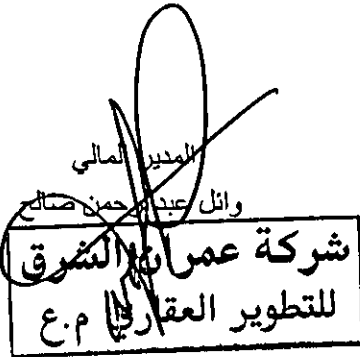 المدير المالي
وائل عبدالرحمن صالح
شركة عمران الشرق
للتطوير العقاري م.ع